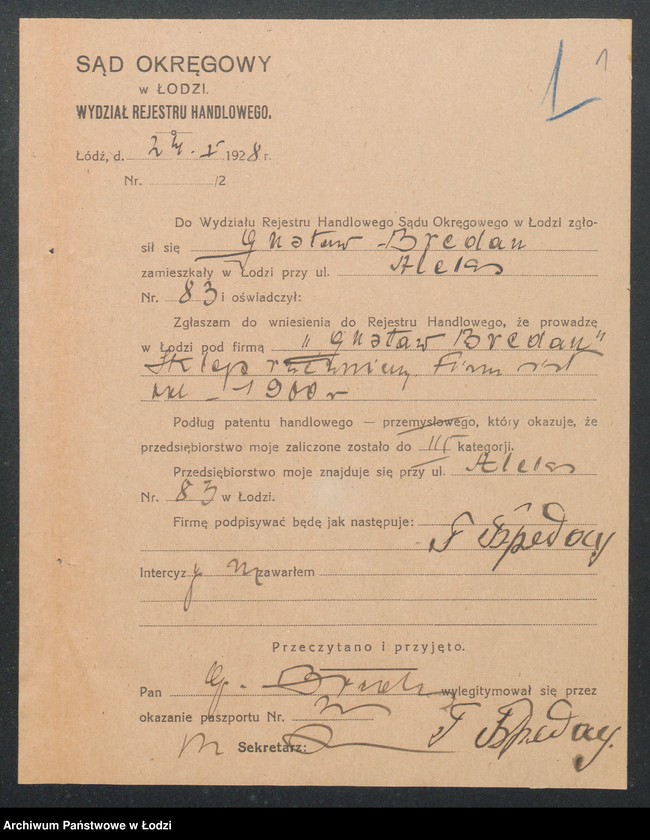 SĄD OKRĘGOWY
W ŁODZI.
WYDZIAŁ REJESTRU HANDLOWEGO.
1
Łódź, d. 1928 r.
Nr. /2
Do Wydziału Rejestru Handlowego Sądu Okręgowego w Łodzi zgło-
sił się Gustaw Bredan
zamieszkały w Łodzi przy ul.
Nr. 83 i oświadczył:
Zgłaszam do wniesienia do Rejestru Handlowego, że prowadzę
w Łodzi pod firmą „Gustaw Bredan"
Sklep Firma
1900 r
Podług patentu handlowego — przemysłowego, który okazuje, że
przedsiębiorstwo moje zaliczone zostało do III kategorji.
Przedsiębiorstwo moje znajduje się przy ul.
Nr. 83 w Łodzi.
Firmę podpisywać będę jak następuje:
Intercyzy nie zawarłem
Przeczytano i przyjęto.
Pan G. wylegitymował się przez
okazanie paszportu Nr.
Sekretarz:
Archiwum Państwowe w Łodzi